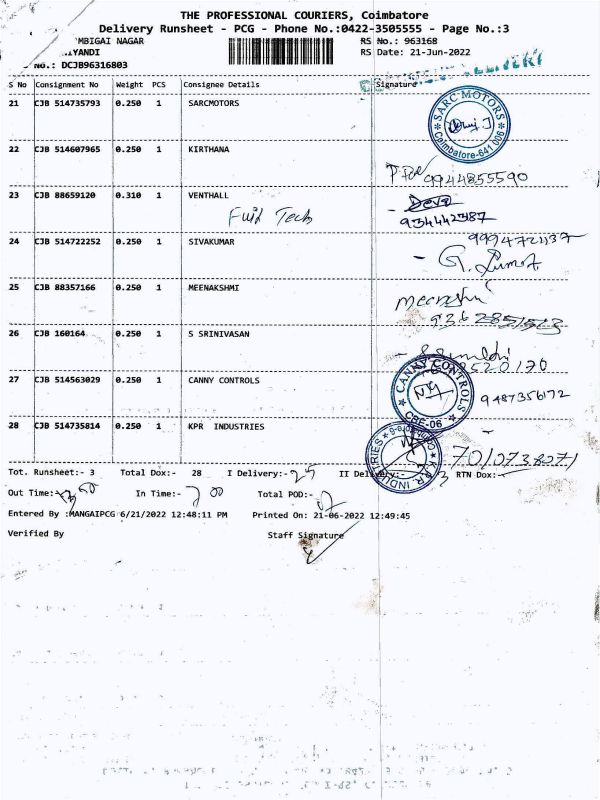 THE PROFESSIONAL COURIERS, Coimbatore
Delivery Runsheet - PCG - Phone No.:0422-3505555 - Page No.:3
MBIGAI NAGAR RS No.: 963168
IYANDI RS Date: 21-Jun-2022
NO.: DCJB96316803
S No Consignment No Weight PCS Consignee Details Signature
21 CJB 514735793 0.250 1 SARCMOTORS
SARC MOTORS
Coimbatore-641 006
22 CJB 514607965 0.250 1 KIRTHANA
9944855590
23 CJB 88659120 0.310 1 VENTHALL
Deva
Fuid Tech 9344423187
24 CJB 514722252 0.250 1 SIVAKUMAR
25 CJB 88357166 0.250 1 MEENAKSHMI
26 CJB 160164 0.250 1 S SRINIVASAN
27 CJB 514563029 0.250 1 CANNY CONTROLS
CANNY CONTROLS
CBE-06
9487356172
28 CJB 514735814 0.250 1 KPR INDUSTRIES
INDUSTRIES
7010738071
Tot. Runsheet:- 3 Total Dox:- 28 I Delivery:- 25 II Delivery:- 3 RTN Dox:-
Out Time:- In Time:- 7 00 Total POD:-
Entered By :MANGAIPCG 6/21/2022 12:48:11 PM Printed On: 21-06-2022 12:49:45
Verified By Staff Signature